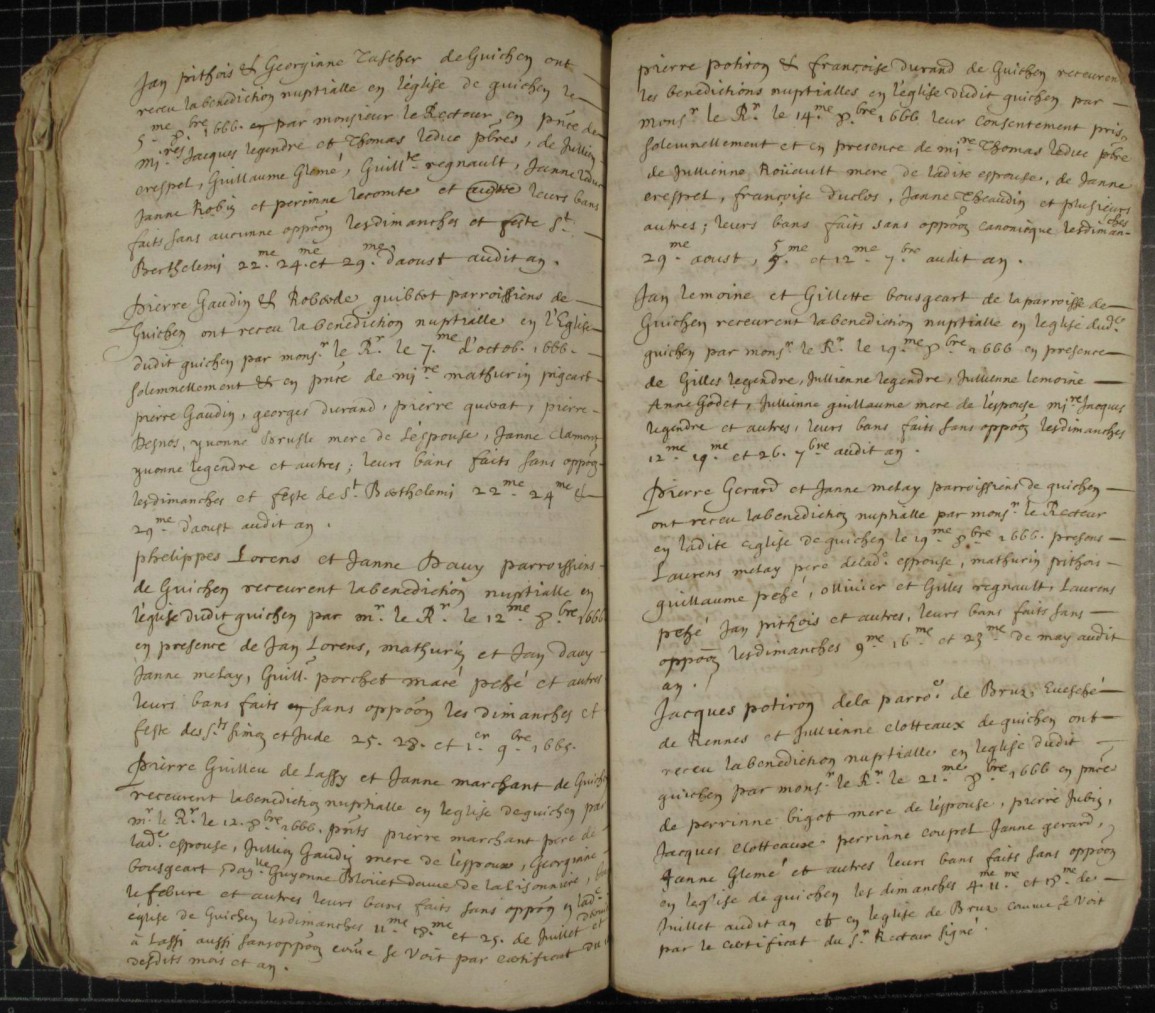 Jan pithois & Georginne Tascher de Guichen ont
receu la benediction nuptialle en l'église de guichen le
5me 8bre 1666. par monsieur le Recteur en pnce de
mires Jacques legendre et Thomas leduc pbres, de Jullien
crespel, Guillaume Glemé, Guillte regnault, Janne leduc
Janne Robin et perinne lecomte et autre leurs bans
faits sans aucunne oppoon les dimanches et feste St
Berthelemi 22me 24me et 29me d'aoust audit an.
Pierre Gaudin & Roberde quibert parroissiens de
Guichen ont receu la benediction nuptialle en l'Eglise
dudit guichen par monsr le Rr le 7me d'octob. 1666.
solemnellement & en pnce de mire mathurin pigeart
pierre Gaudin, georges durand, pierre quevat, pierre
Desnos, yvonne Brusle mere de l'espouse, Janne Clamort
yvonne legendre et autres; leurs bans faits sans oppoon
les dimanches et feste de St Berthelemi 22me 24me &
29me d'aoust audit an.
phelippes Lorens et Janne Davy parroissiens
de Guichen receurent la benediction nuptialle en
l'église dudit guichen par mr le Rr le 12me 8bre 1666
en presence de Jan Lorens, mathurin et Jan davy
Janne melay, Guill. porchet macé pehé et autres
leurs bans faits sans oppoon les dimanches et
feste des Sts simon et Jude 25. 28. et 1er 9bre 1665.
Pierre Guilleu de Lassy et Janne marchant de Guichen
receurent la benediction nuptialle en leglise de guichen par
mr le Rr le 12. 8bre 1666. pnts pierre marchant pere de
lade espouse, Jullien Gaudin mere de l'espoux, Georginne
bousgeart dalle Guyonne Bloüet dame de la lisonniere,
le febure et autres leurs bans faits sans oppoon en lad.
eglise de Guichen les dimanches 11me 18me et 25. de Juillet et
à Lassi aussi sans oppoon come se voit par certificat du
desdits mois et an.
pierre potiron & françoise durand de Guichen receuren
les benedictions nuptialles en l'église dudit guichen par
monsr le Rr le 14me 8bre 1666 leur consentement pris
solemnellement et en presence de mire Thomas leduc pbre
de Jullienne Roüault mere de ladite espouse, de Janne
crespel, françoise duclos, Janne Theaudin et plusieurs
autres; leurs bans faits sans oppoon canonicque les diman-
ches
29me aoust, 5me et 12me 7bre audit an.
Jan lemoine et Gillette bousgeart de la parroisse de
Guichen receurent la benediction nuptialle en leglise dude
guichen par monsr le Rr le 19me 8bre 1666 en presence
de Gilles legendre, Jullienne legendre, Jullienne lemoine
Anne Godet, Jullienne guillaume mere de l'espouse mire Jacques
legendre et autres, leurs bans faits sans oppoon les dimanches
12me 19me et 26. 7bre audit an.
Pierre Gerard et Janne melay parroissiens de guichen
ont receu la benediction nuptialle par monsr le Recteur
en ladite eglise de guichen le 19me 8bre 1666. presens
Laurens melay pere de lade espouse, mathurin pithois
guillaume pehé, ollivier et Gilles regnault, Laurens
pehé Jan pithois et autres, leurs bans faits sans
oppoon les dimanches 9me 16me et 23me de may audit
an.
Jacques potiron de la parroe de Bruz Evesché
de Rennes et Jullienne clotteaux de guichen ont
receu la benediction nuptialle en leglise dudit
guichen par monsr le Rr le 21me 8bre 1666 en pnce
de perrinne bigot mere de l'espouse, pierre Jubin,
Jacques clotteaux perrinne coupel Janne gerard,
Janne Glemé et autres leurs bans faits sans oppoon
en leglise de guichen les dimanches 4me 11me et 18me de
Juillet audit an et en leglise de Bruz comme se voit
par le certificat du Sr Recteur signé.